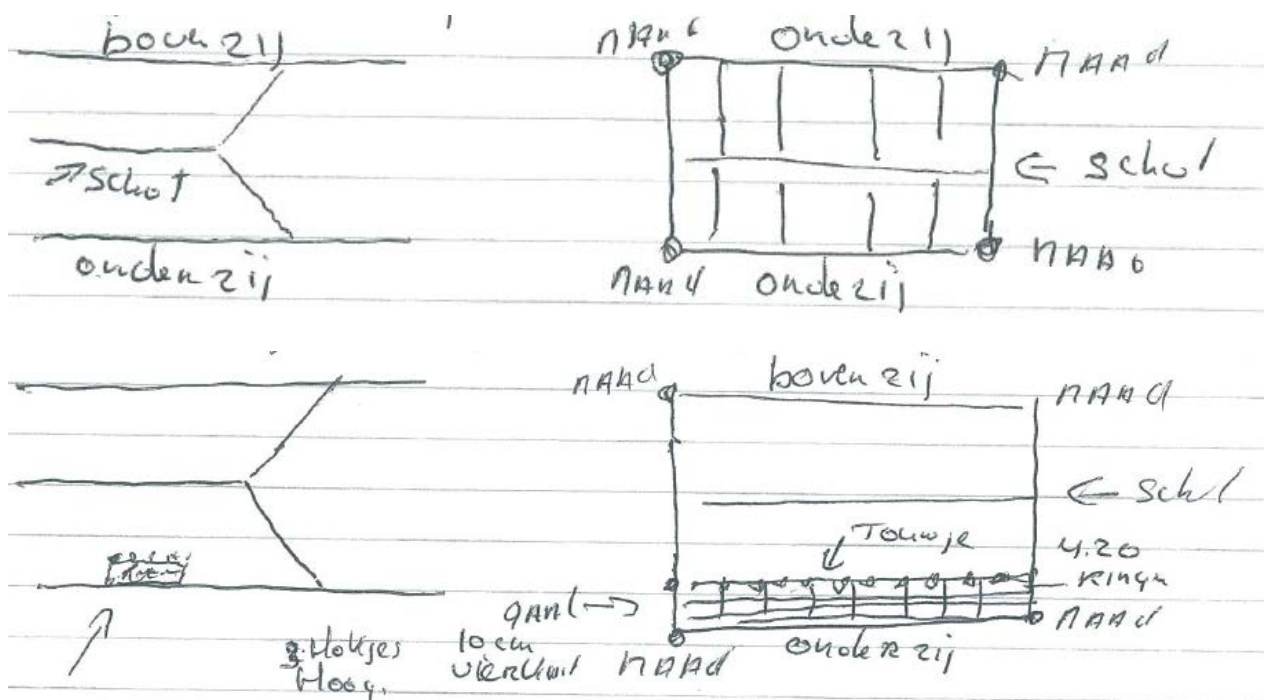 boven zij
↗ schot
onderzij
naad
onderzij
naad
← schot
naad
onderzij
naad
naad
boven zij
naad
← schot
Touwje
4.20
Ringen
gaas →
naad
naad
onderzij
3 Hokjes
Hoog.
10 cm
vierkant